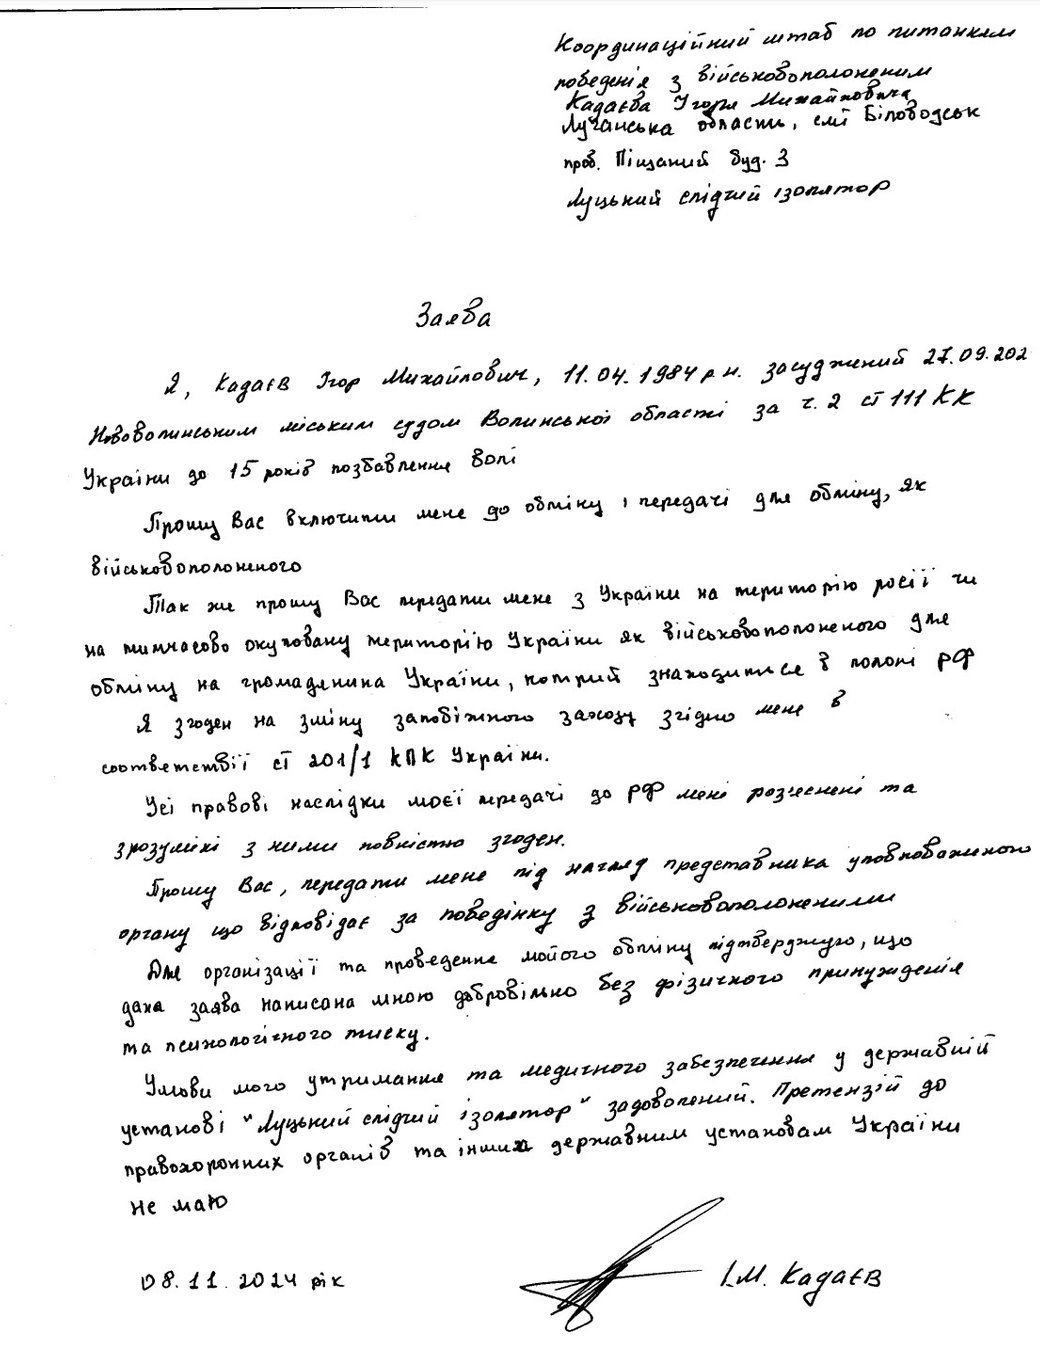 Координаційний штаб по питанням
поведенія з військовополоненим
Кадаєва Ігоря Михайловича
Луганська области, смт Біловодськ
пров. Піщаний буд. 3
Луцький слідчий ізолятор
Заява
Я, Кадаєв Ігор Михайлович, 11.04.1984 р.н. засуджений 27.09.202
Нововолинським міським судом Волинської області за ч. 2 ст 111 КК
України до 15 років позбавлення волі
Прошу Вас включити мене до обміну і передачі для обміну, як
військовополоненого
Так же прошу Вас передати мене з України на територію росії чи
на тимчасово окуповану територію України як військовополоненого для
обміну на громаденина України, котрий знаходиться в полоні РФ
Я згоден на зміну запобіжного заходу згідно мене в
соответствії ст 201/1 КПК України.
Усі правові наслідки моєї передачі до РФ мені розяснені та
зрозумілі з ними повністю згоден.
Прошу Вас, передати мене під нагляд представника уповноваженого
органу що відповідає за поведінку з військовополоненими
Для організації та проведення мойого обміну підтверджую, що
дана заява написана мною добровільно без фізичного принужденія
та психологічного тиску.
Умови мого утримання та медичного забезпечення у державній
установі "Луцький слідчий ізолятор" задоволений. Претензій до
правохоронних органів та інших державним установам України
не маю
08.11.2024 рік
І.М. Кадаєв